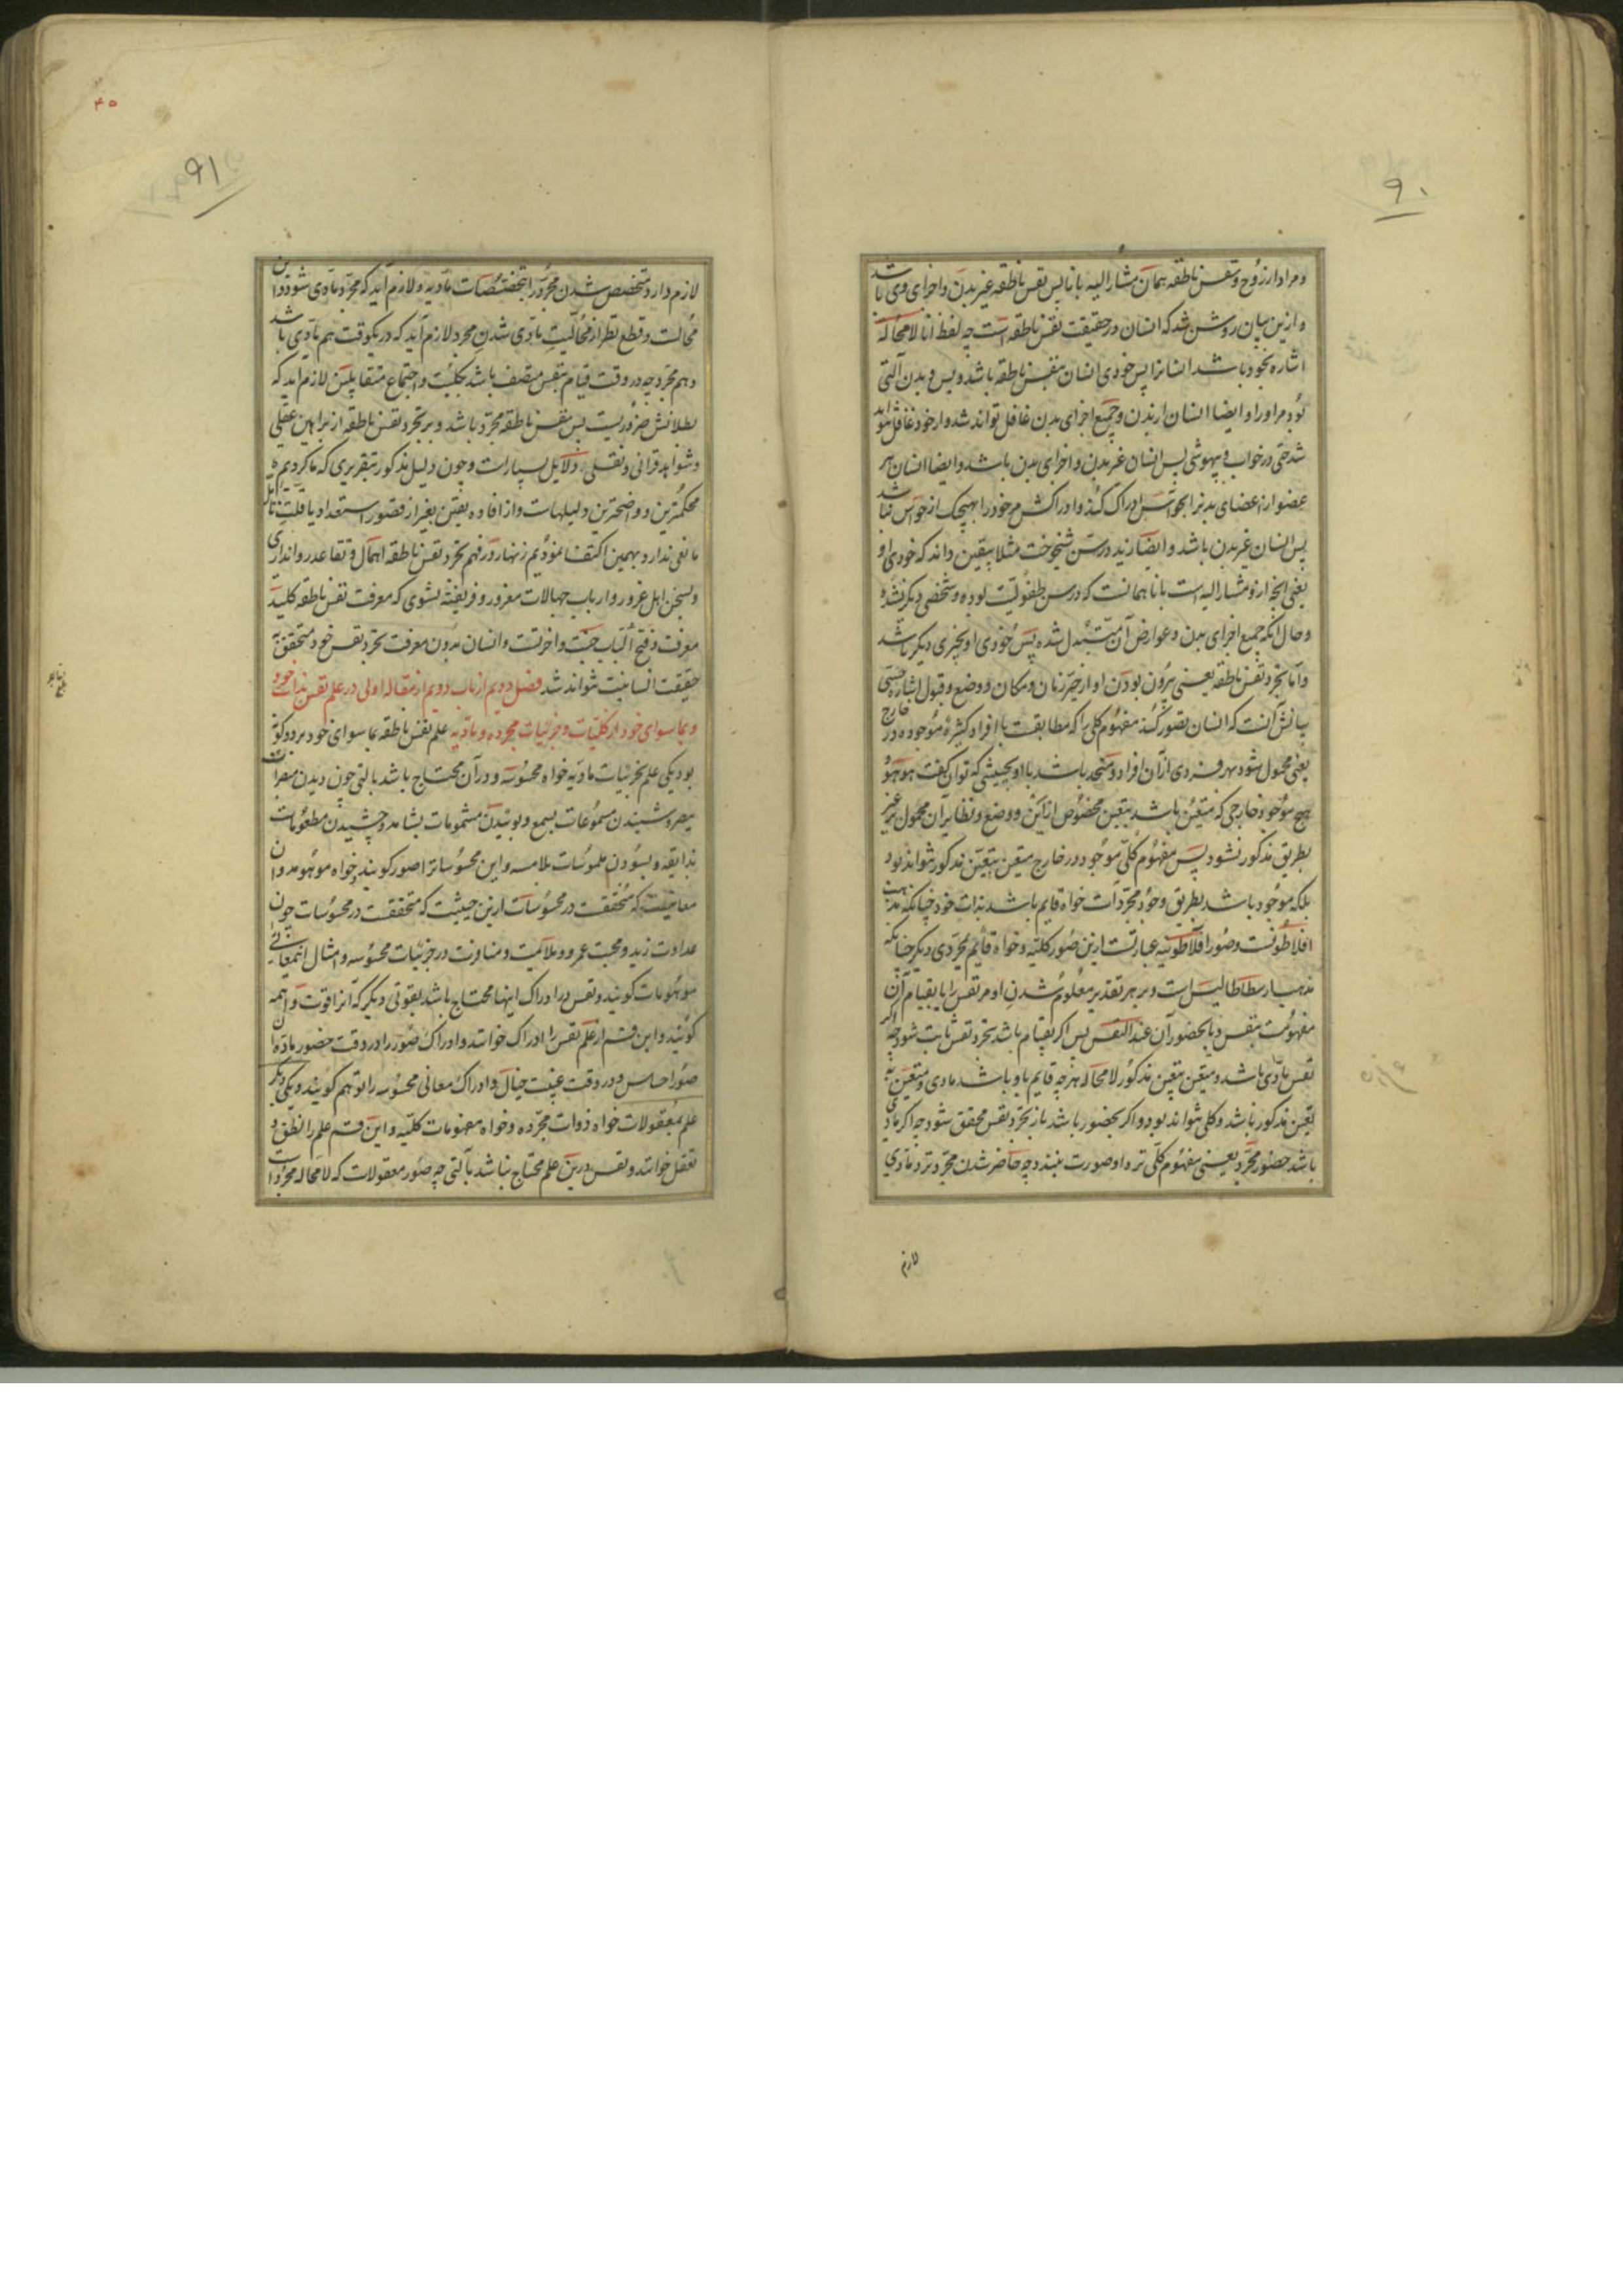 ۹۰
و مراد از روح و نفس ناطقه همان مشارالیه بانا پس نفس ناطقه غیر بدن و اجزای وی باشد
و ازین بیان روشن شد که انسان در حقیقت نفس ناطقه است چه لفظ انا لامحاله
اشاره بخود باشد انسانرا پس خودی انسان بنفس ناطقه باشد و بس و بدن آلتی
بود مر او را و ایضا انسان از بدن و جمیع اجزای بدن غافل تواند شد و از خود غافل نتواند
شد حتی در خواب و بیهوشی پس انسان غیر بدن و اجزای بدن باشد و ایضا انسان هر
عضو از اعضای بدنرا بحواس ادراک کند و ادراکش مر خود را بهیچیک از حواس نباشد
پس انسان غیر بدن باشد و ایضا زید در سن شیخوخت مثلا بیقین داند که خودی او
یعنی انچه ازو مشارالیه است بانا همانست که در سن طفولیت بوده و شخصی دیگر نشده
و حال آنکه جمیع اجزای بدن و عوارض آن متبدل شده پس خودی او بچیزی دیگر باشد
و اما تجرد نفس ناطقه یعنی بیرون بودن او از حیز زمان و مکان و وضع و قبول اشاره حسی
بیانش آنست که انسان تصور کند مفهوم کلی را که مطابقست با افراد کثیره موجوده در خارج
یعنی محمول شود بهر فردی از آن افراد و متحد باشد با او بحیثیتی که توان گفت هو هو و
هیچ موجود خارجی که متعین باشد بتعین مخصوص از این و وضع و نظایر آن محمول بر غیر
بطریق مذکور نشود پس مفهوم کلی موجود در خارج متعین بتعین مذکور نتواند بود
بلکه موجود باشد بطریق وجود مجردات خواه قایم باشد بذات خود چنانکه مذهب
افلاطونست و صور افلاطونیه عبارتست ازین صور کلیه و خواه قایم بمجردی دیگر چنانکه
مذهب ارسطاطالیس است و بر هر تقدیر معلوم شدن او مر نفس را یا بقیام آن
مفهومست بنفس و یا بحضور آن عند النفس پس اگر بقیام باشد تجرد نفس ثابت شود چه اگر
نفس مادی باشد و متعین بتعین مذکور لامحاله هر چه قایم باو باشد مادی و متعین به
تعین مذکور باشد و کلی نتواند بود و اگر بحضور باشد باز تجرد نفس محقق شود چه اگر مادی
باشد حضور مجرد یعنی مفهوم کلی نزد او صورت نبندد چه حاضر شدن مجرد نزد مادی
لازم
۴۵
۹۱
لازم دارد متخصص شدن مجرد را بتخصصات مادیه و لازم آید که مجرد مادی شود و این
محالست و قطع نظر از محالیت مادی شدن مجرد لازم آید که در یکوقت هم مادی باشد
و هم مجرد چه در وقت قیام بنفس متصف باشد بکلیت و اجتماع متقابلین لازم آید که
بطلانش ضروریست پس نفس ناطقه مجرد باشد و بر تجرد نفس ناطقه از براهین عقلی
و شواهد قرانی و نقلی دلایل بسیار است و چون دلیل مذکور بتقریری که ما کردیم
محکمترین و واضحترین دلیلهاست و از افاده یقین بغیر از قصور استعداد یا قلت تامل
مانعی ندارد بهمین اکتفا نمودیم زنهار در فهم تجرد نفس ناطقه اهمال و تقاعد روا نداری
و بسخن اهل غرور و ارباب جهالات مغرور و فریفته نشوی که معرفت نفس ناطقه کلید
معرفت و فتح الباب جنت و آخرتست و انسان بدون معرفت تجرد نفس خود متحقق به
حقیقت انسانیت نتواند شد فصل دویم از باب دویم از مقاله اولی در علم نفس بذات خود
و بما سوای خود از کلیات و جزئیات مجرده و مادیه علم نفس ناطقه بما سوای خود بر دو گونه
بود یکی علم بجزئیات مادیه خواه محسوسه و در آن محتاج باشد بالتی چون دیدن مبصرات
ببصر و شنیدن مسموعات بسمع و بوئیدن مشمومات بشامه و چشیدن مطعومات
بذایقه و بسودن ملموسات بلامسه و این محسوساترا صور گویند و خواه موهومه و آن
معانیست که متحققست در محسوسات ازین حیثیت که متحققست در محسوسات چون
عداوت زید و محبت عمرو و ملائمت و منافرت در جزئیات محسوسه و امثال اینمعانی را
موهومات گویند و نفس در ادراک اینها محتاج باشد بقوتی دیگر که آنرا قوت واهمه
گویند و این قسم از علم نفس را ادراک خوانند و ادراک صور را در وقت حضور ماده آن
صور احساس و در وقت غیبت خیال و ادراک معانی محسوسه را توهم گویند و یکی دیگر
علم بمعقولات خواه ذوات مجرده و خواه مفهومات کلیه و این قسم علم را نطق و
تعقل خوانند و نفس درین علم محتاج نباشد بآلتی چه صور معقولات که لامحاله مجرد است